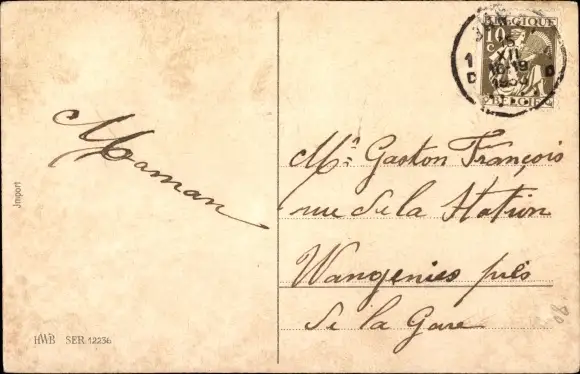 BELGIQUE
10
XII
18-19
BELGIË
Maman
Mr. Gaston François
rue de la Station
Wangenies près
de la Gare
Import
HWB SER. 12236
08